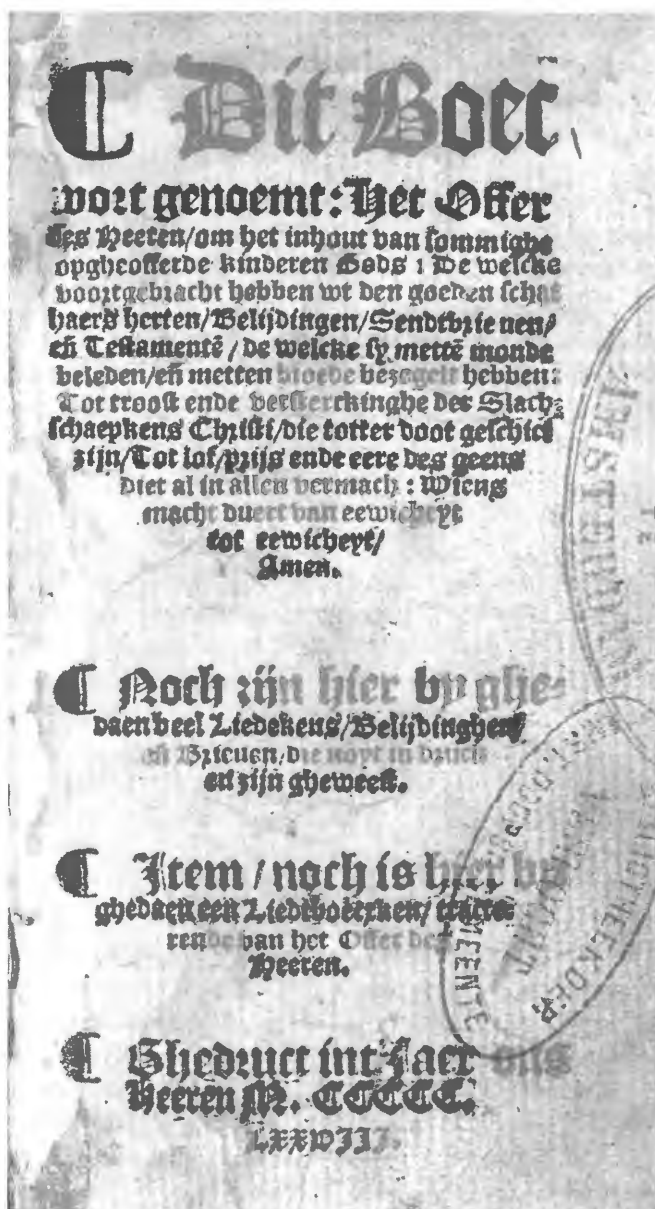 ¶ Dit Boec
wort genoemt: Het Offer
des Heeren/om het inhout van sommighe
opgheofferde kinderen Gods : De welcke
voortgebracht hebben wt den goeden schat
haers herten/Belijdingen/Sendtbrieuen/
eñ Testamentẽ/de welcke sy mettẽ monde
beleden/eñ metten bloede bezegelt hebben:
Tot troost ende versterckinghe der Slach-
schaepkens Christi/die totter doot geschict
zijn/Tot lof/prijs ende eere des geens
diet al in allen vermach : Wiens
macht duert van eewicheyt
tot eewicheyt/
Amen.
¶ Noch zijn hier by ghe-
daen veel Liedekens/Belijdinghen
eñ Brieuen, die noyt in druck
en zijn gheweest.
¶ Item / noch is hier by
ghedaen een Liedtboecxken/ tracte-
rende van het Offer des
Heeren.
¶ Ghedruct int Jaer ons
Heeren M. CCCCC.
LXXVIII.
AMSTERDAM
BIBLIOTHEEK DER
GEMEENTE